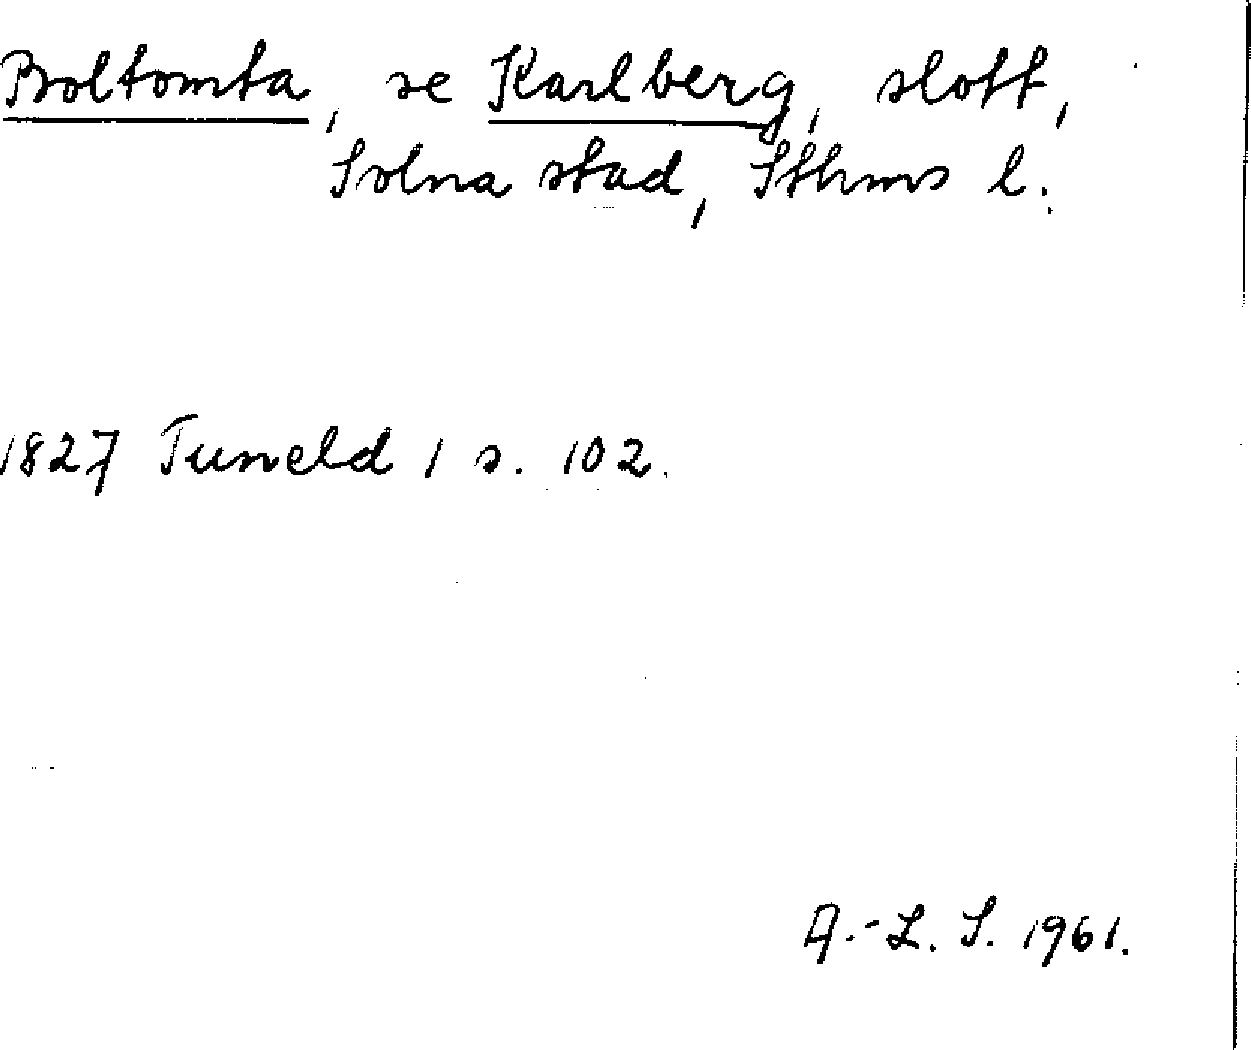 Boltomta, se Karlberg, slott,
Solna stad, Sthms l.
1827 Tuneld 1 s. 102.
A.-L. S. 1961.